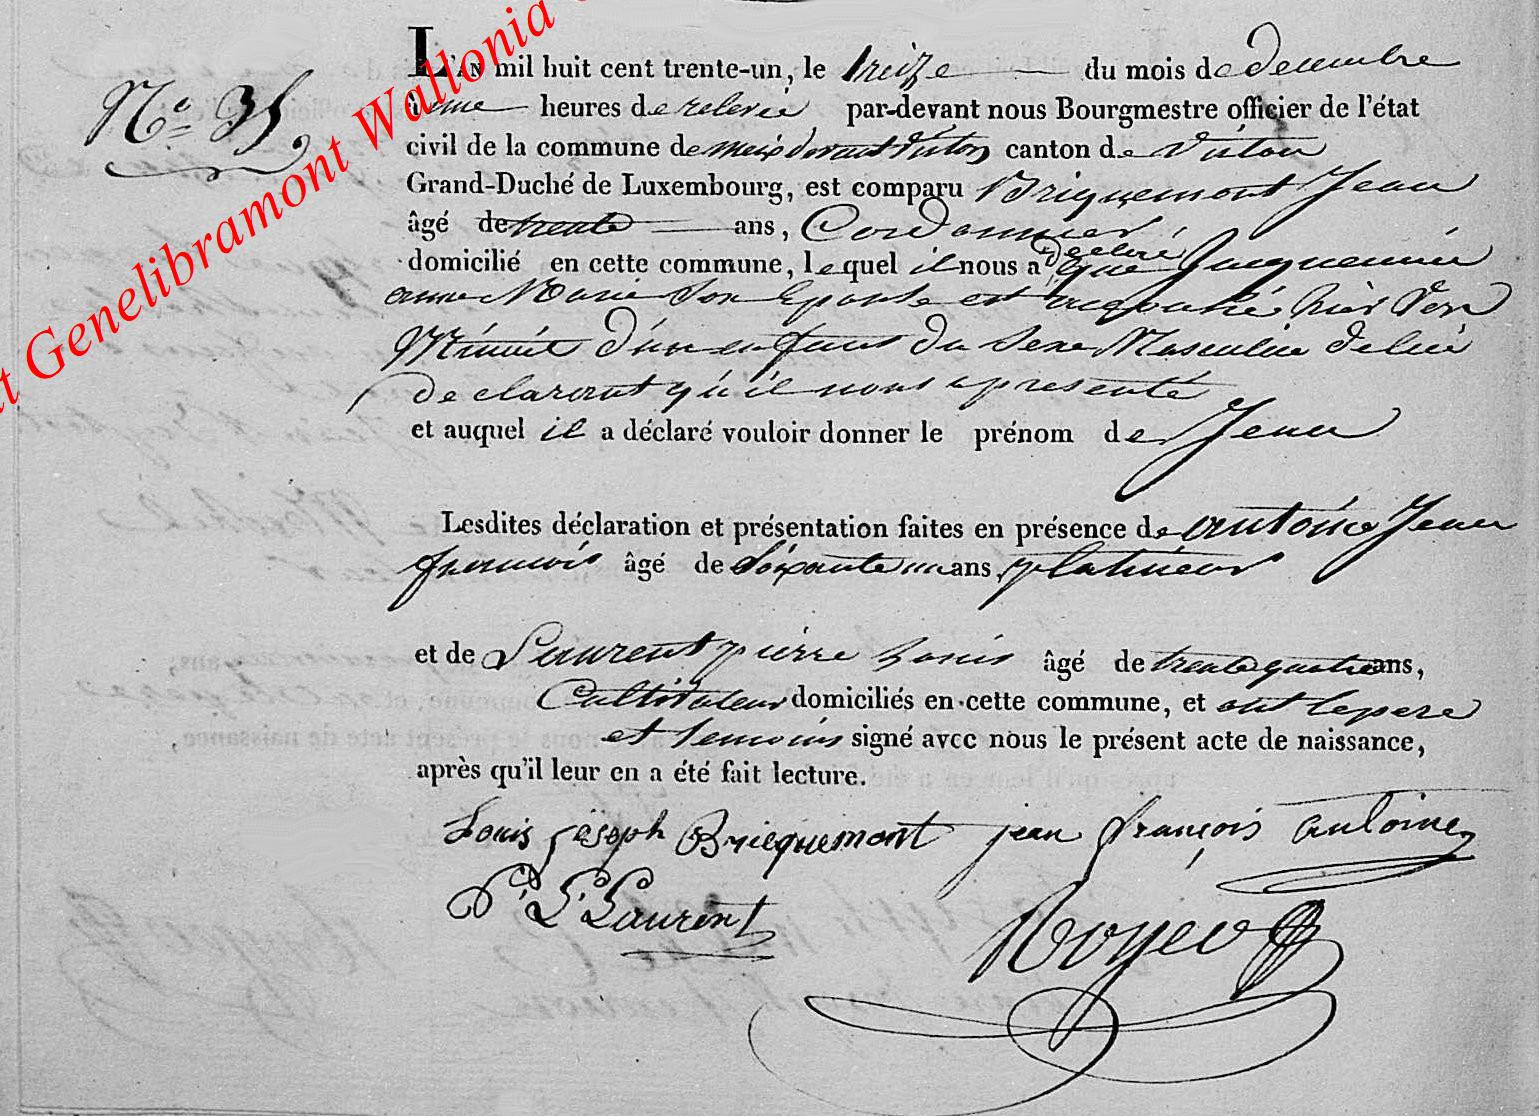 t Genelibramont Wallonia
N.° 35.
L'AN mil huit cent trente-un, le treize du mois de decembre
à une heures de relevée par-devant nous Bourgmestre officier de l'état
civil de la commune de meix devant virton canton de virton
Grand-Duché de Luxembourg, est comparu Briquemont Jean
âgé de trente ans, Cordonnier
domicilié en cette commune, lequel il nous a déclaré que Jacquemin
anne Marie Son Epouse est accouché hier vers
Minuit d'un enfant du Sexe Masculin de lui
declarant qu'il nous a presenté
et auquel il a déclaré vouloir donner le prénom de Jean
Lesdites déclaration et présentation faites en présence de antoine Jean
francois âgé de soixante un ans, platineur
et de Laurent pierre Louis âgé de trente quatre ans,
Cultivateur domiciliés en cette commune, et ont le pere
et temoins signé avec nous le présent acte de naissance,
après qu'il leur en a été fait lecture.
Louis joseph Bricquemont jean françois antoine
P. L. Laurent